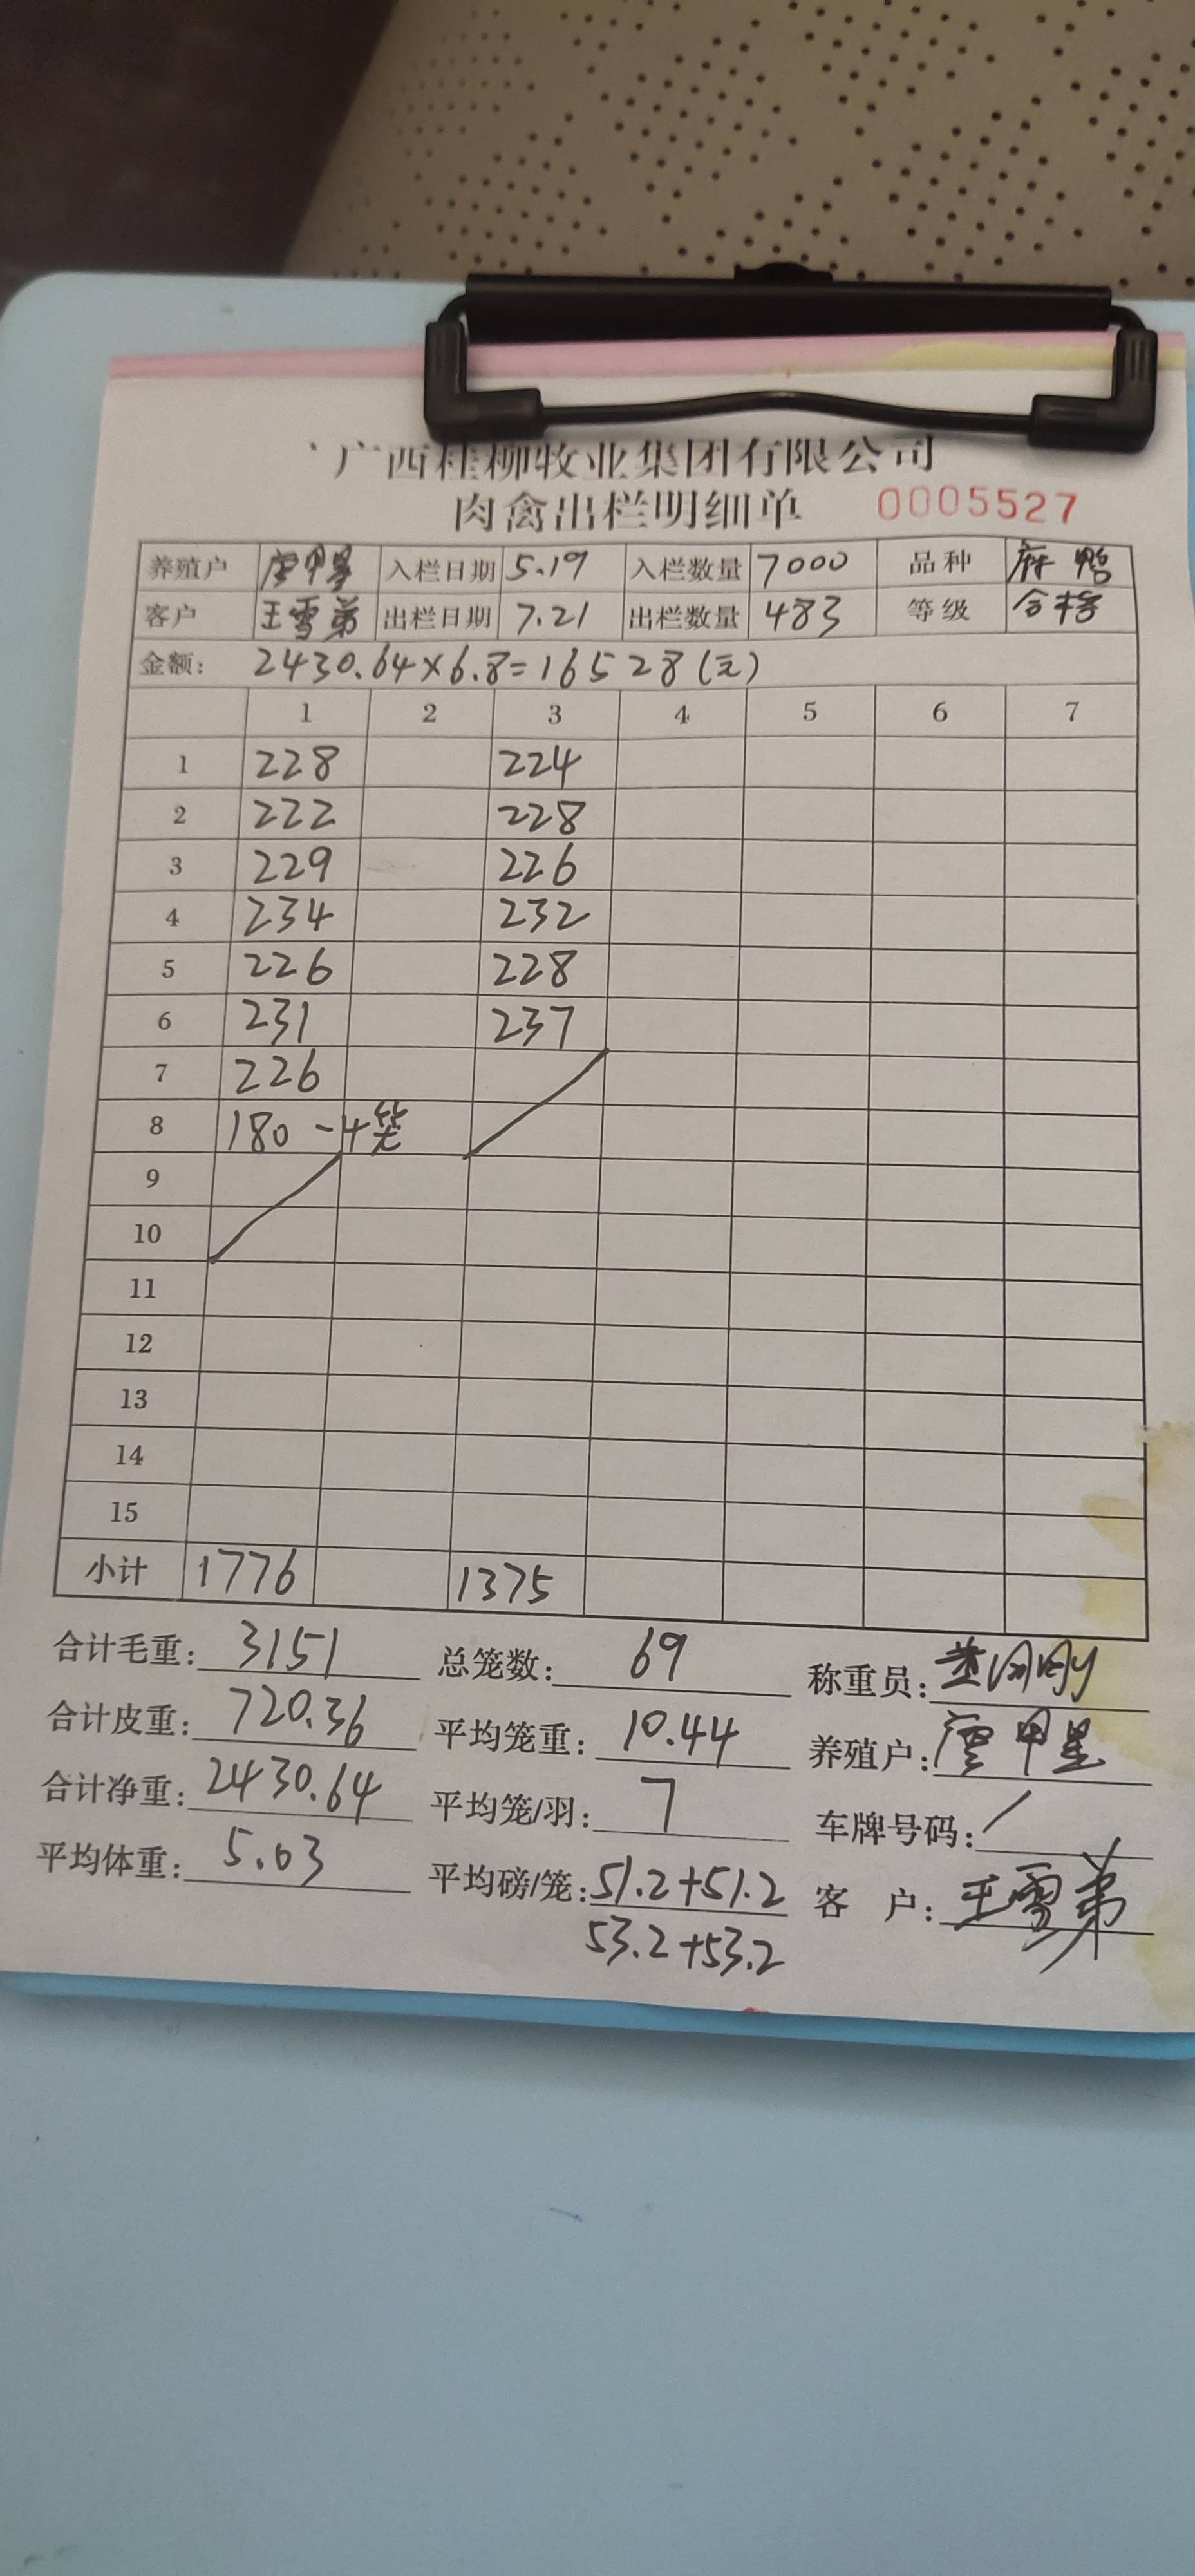 广西桂柳牧业集团有限公司
肉禽出栏明细单 0005527
养殖户 入栏日期 5.19 入栏数量 7000 品种 麻鸭
客户 王雪弟 出栏日期 7.21 出栏数量 483 等级 合格
金额: 2430.64×6.8=16528(元)
1 2 3 4 5 6 7
1 228 224
2 222 228
3 229 226
4 234 232
5 226 228
6 231 237
7 226
8 180 -4笼
9
10
11
12
13
14
15
小计 1776 1375
合计毛重: 3151 总笼数: 69 称重员:
合计皮重: 720.36 平均笼重: 10.44 养殖户:
合计净重: 2430.64 平均笼/羽: 7 车牌号码: /
平均体重: 5.03 平均磅/笼: 51.2+51.2 客 户: 王雪弟
53.2+53.2